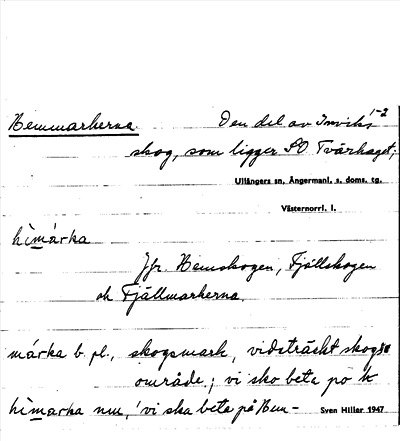 Hemmarkerna. Den del av Inviks 1-2
skog, som ligger SO. Tvärhaget;
Ullångers sn, Ångermanl. s. doms. tg.
Västernorrl. l.
himárka
Jfr. Hemskogen, Fjällskogen
och Fjällmarkerna.
márka b. pl., skogsmark, vidsträckt skogs-
område; vi sko beta po
himarka nu, 'vi ska beta på Hem-
Sven Hiller 1947